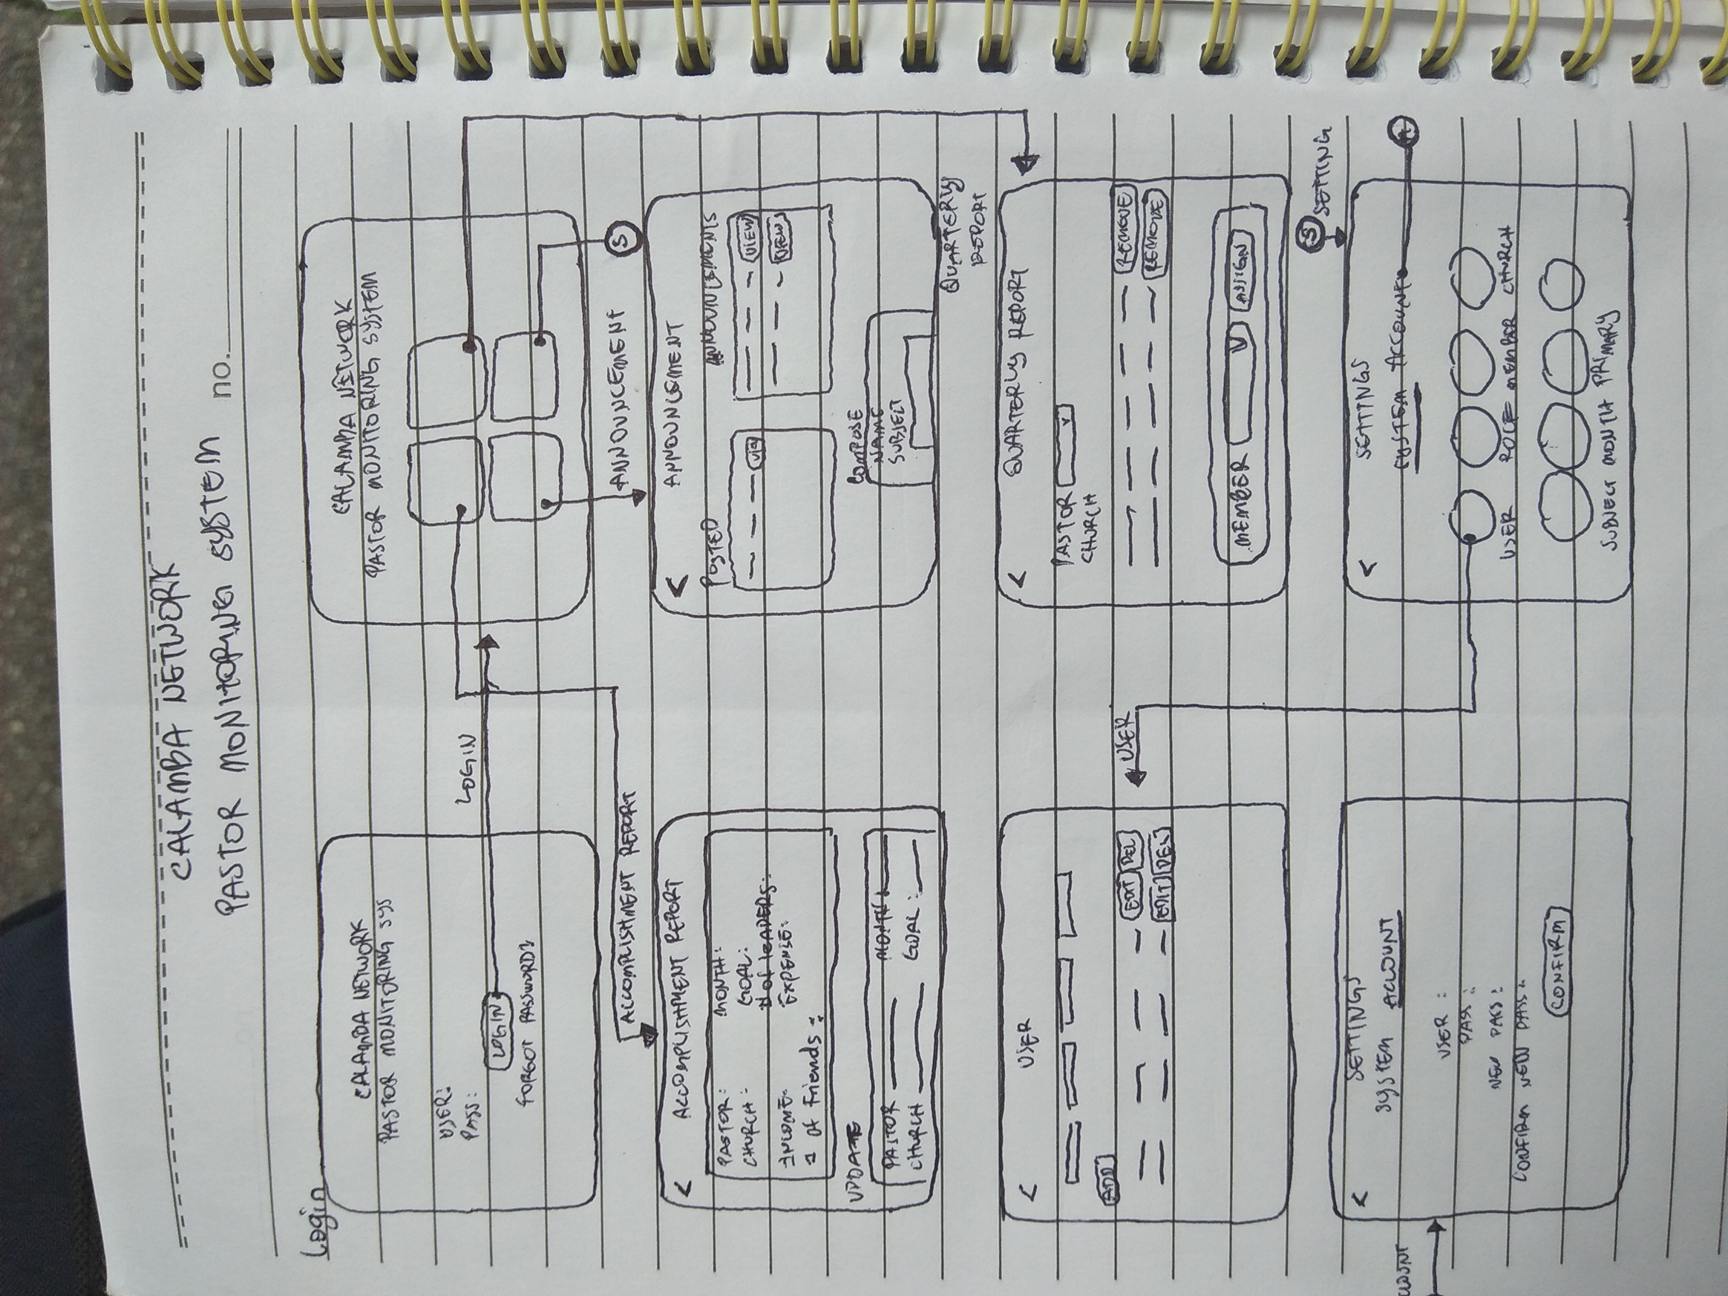 CALAMBA NETWORK
PASTOR MONITORING SYSTEM
no.
Login
CALAMBA NETWORK
PASTOR MONITORING SYS
USER:
PASS:
LOGIN
FORGOT PASSWORD?
LOGIN
CALAMBA NETWORK
PASTOR MONITORING SYSTEM
ACCOMPLISHMENT REPORT
ANNOUNCEMENT
S
< ACCOMPLISHMENT REPORT
PASTOR: MONTH:
CHURCH: GOAL:
# of LEADERS:
INCOME: EXPENSE:
# of Friends :
UPDATE
PASTOR MONTH:
CHURCH GOAL:
< ANNOUNCEMENT
POSTED ANNOUNCEMENTS
VIEW
VIEW
COMPOSE
NAME
SUBJECT
QUARTERLY
REPORT
< USER
ADD
EDIT DEL
EDIT DEL
USER
< QUARTERLY REPORT
PASTOR
CHURCH
REMOVE
REMOVE
MEMBER ASSIGN
S SETTING
< SETTINGS
SYSTEM ACCOUNT
USER :
PASS :
NEW PASS :
CONFIRM NEW PASS :
CONFIRM
< SETTINGS
SYSTEM ACCOUNT
A
USER ROLE MEMBER CHURCH
SUBJECT MONTH PRIMARY